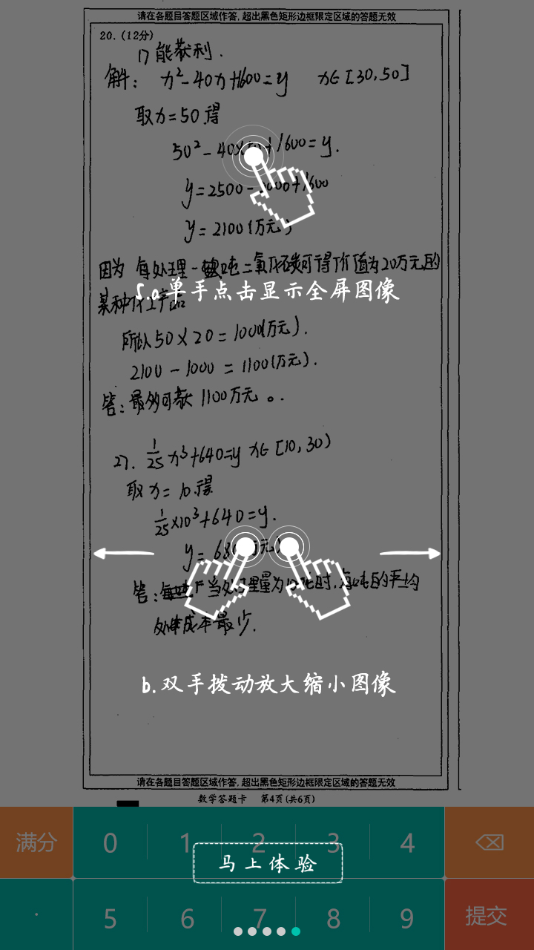 请在各题目答题区域作答,超出黑色矩形边框限定区域的答题无效
20.(12分)
1) 能获利.
解: x²-40x+1600=y x∈[30,50]
取x=50得
50²-40×50+1600=y.
y=2500-2000+1600
y=2100(万元)
因为 每处理一吨二氧化碳可得价值为20万元的
某种化工产品
5.a.单手点击显示全屏图像
所以50×20=1000(万元).
2100-1000=1100(万元).
答:最多可获1100万元。.
27. 1/25 x³+640=y x∈[10,30)
取x=10.得
1/25×10³+640=y.
y=680(万元)
答: 当处理量为10吨时,每吨的平均
处理成本最少.
b.双手拨动放大缩小图像
请在各题目答题区域作答,超出黑色矩形边框限定区域的答题无效
数学答题卡 第4页(共6页)
满分 0 1 2 3 4
马上体验
. 5 6 7 8 9 提交